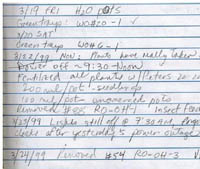 3/19 FRI H2O POTS
Green tags: WO#10-1 ✓
3/20 SAT
Green tags WO#6-1
3/22/99 Mon: Plants have really taken
Power off ~ 9:30 - Noon
Fertilized all plants w/ Peters 20
200 ml/pot seedling
100 ml/pot uncovered pots
Removed #88 RO-OH-1 Insect
3/23/99 Lights still off @ 7:30 AM,
clocks after yesterday's power outage
3/24/99 Removed #54 RO-OH-3